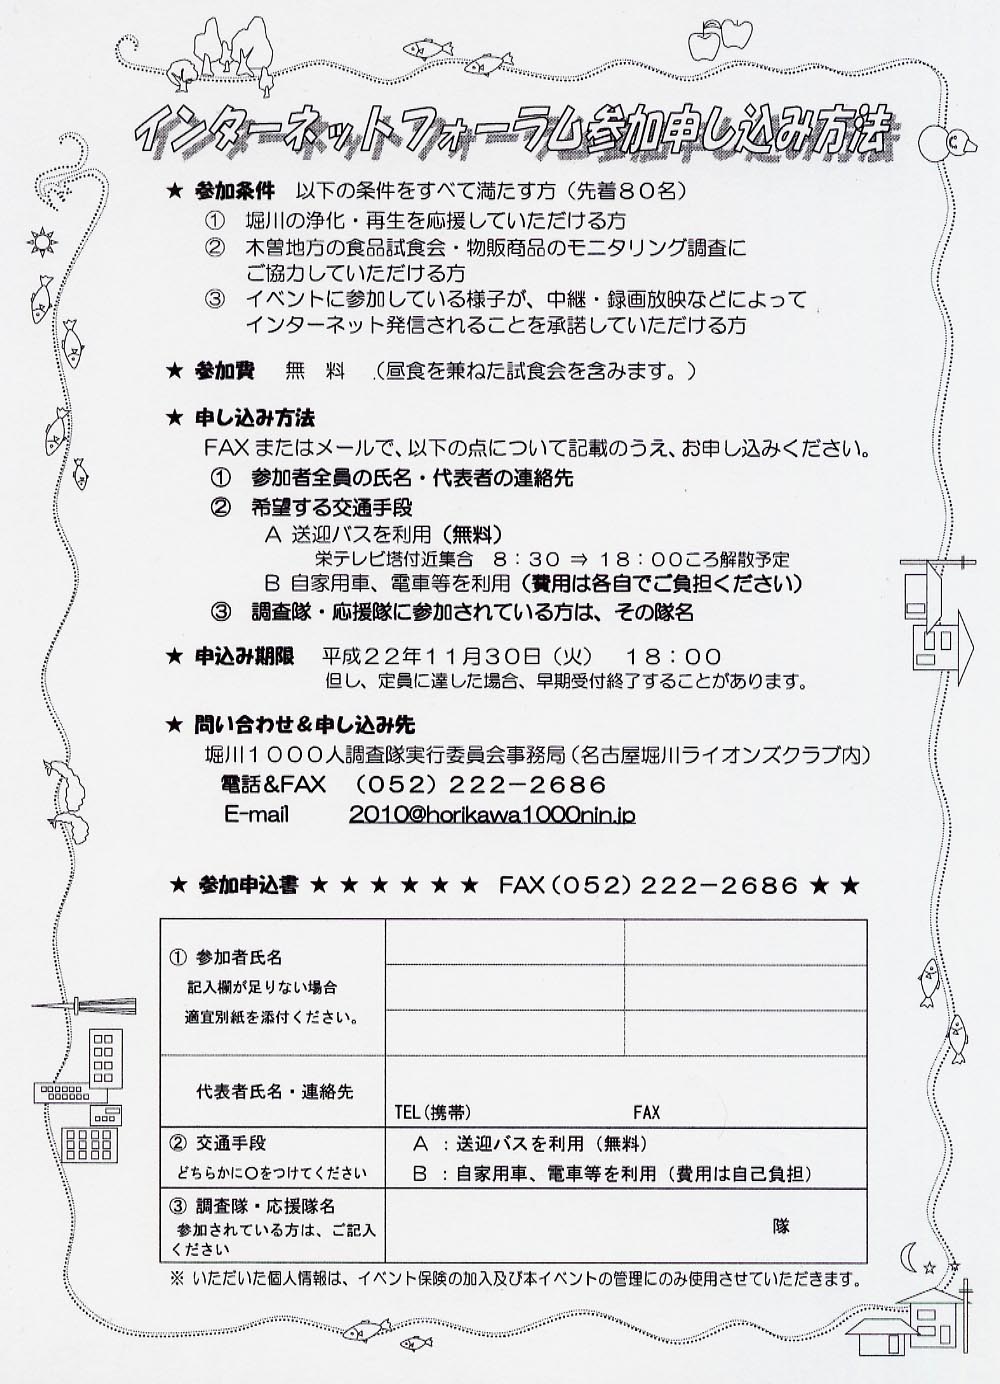 インターネットフォーラム参加申し込み方法
★ 参加条件 以下の条件をすべて満たす方（先着８０名）
① 堀川の浄化・再生を応援していただける方
② 木曽地方の食品試食会・物販商品のモニタリング調査に
ご協力していただける方
③ イベントに参加している様子が、中継・録画放映などによって
インターネット発信されることを承諾していただける方
★ 参加費 無 料 （昼食を兼ねた試食会を含みます。）
★ 申し込み方法
FAX またはメールで、以下の点について記載のうえ、お申し込みください。
① 参加者全員の氏名・代表者の連絡先
② 希望する交通手段
A 送迎バスを利用（無料）
栄テレビ塔付近集合 ８：３０ ⇒ １８：００ころ解散予定
B 自家用車、電車等を利用（費用は各自でご負担ください）
③ 調査隊・応援隊に参加されている方は、その隊名
★ 申込み期限 平成２２年１１月３０日（火） １８：００
但し、定員に達した場合、早期受付終了することがあります。
★ 問い合わせ＆申し込み先
堀川１０００人調査隊実行委員会事務局（名古屋堀川ライオンズクラブ内）
電話＆FAX （０５２）２２２－２６８６
E-mail 2010@horikawa1000nin.jp
★ 参加申込書 ★ ★ ★ ★ ★ ★ FAX（０５２）２２２－２６８６ ★ ★
① 参加者氏名
記入欄が足りない場合
適宜別紙を添付ください。
代表者氏名・連絡先
TEL（携帯） FAX
② 交通手段
どちらかに〇をつけてください
A ：送迎バスを利用（無料）
B ：自家用車、電車等を利用（費用は自己負担）
③ 調査隊・応援隊名
参加されている方は、ご記入
ください
隊
※ いただいた個人情報は、イベント保険の加入及び本イベントの管理にのみ使用させていただきます。